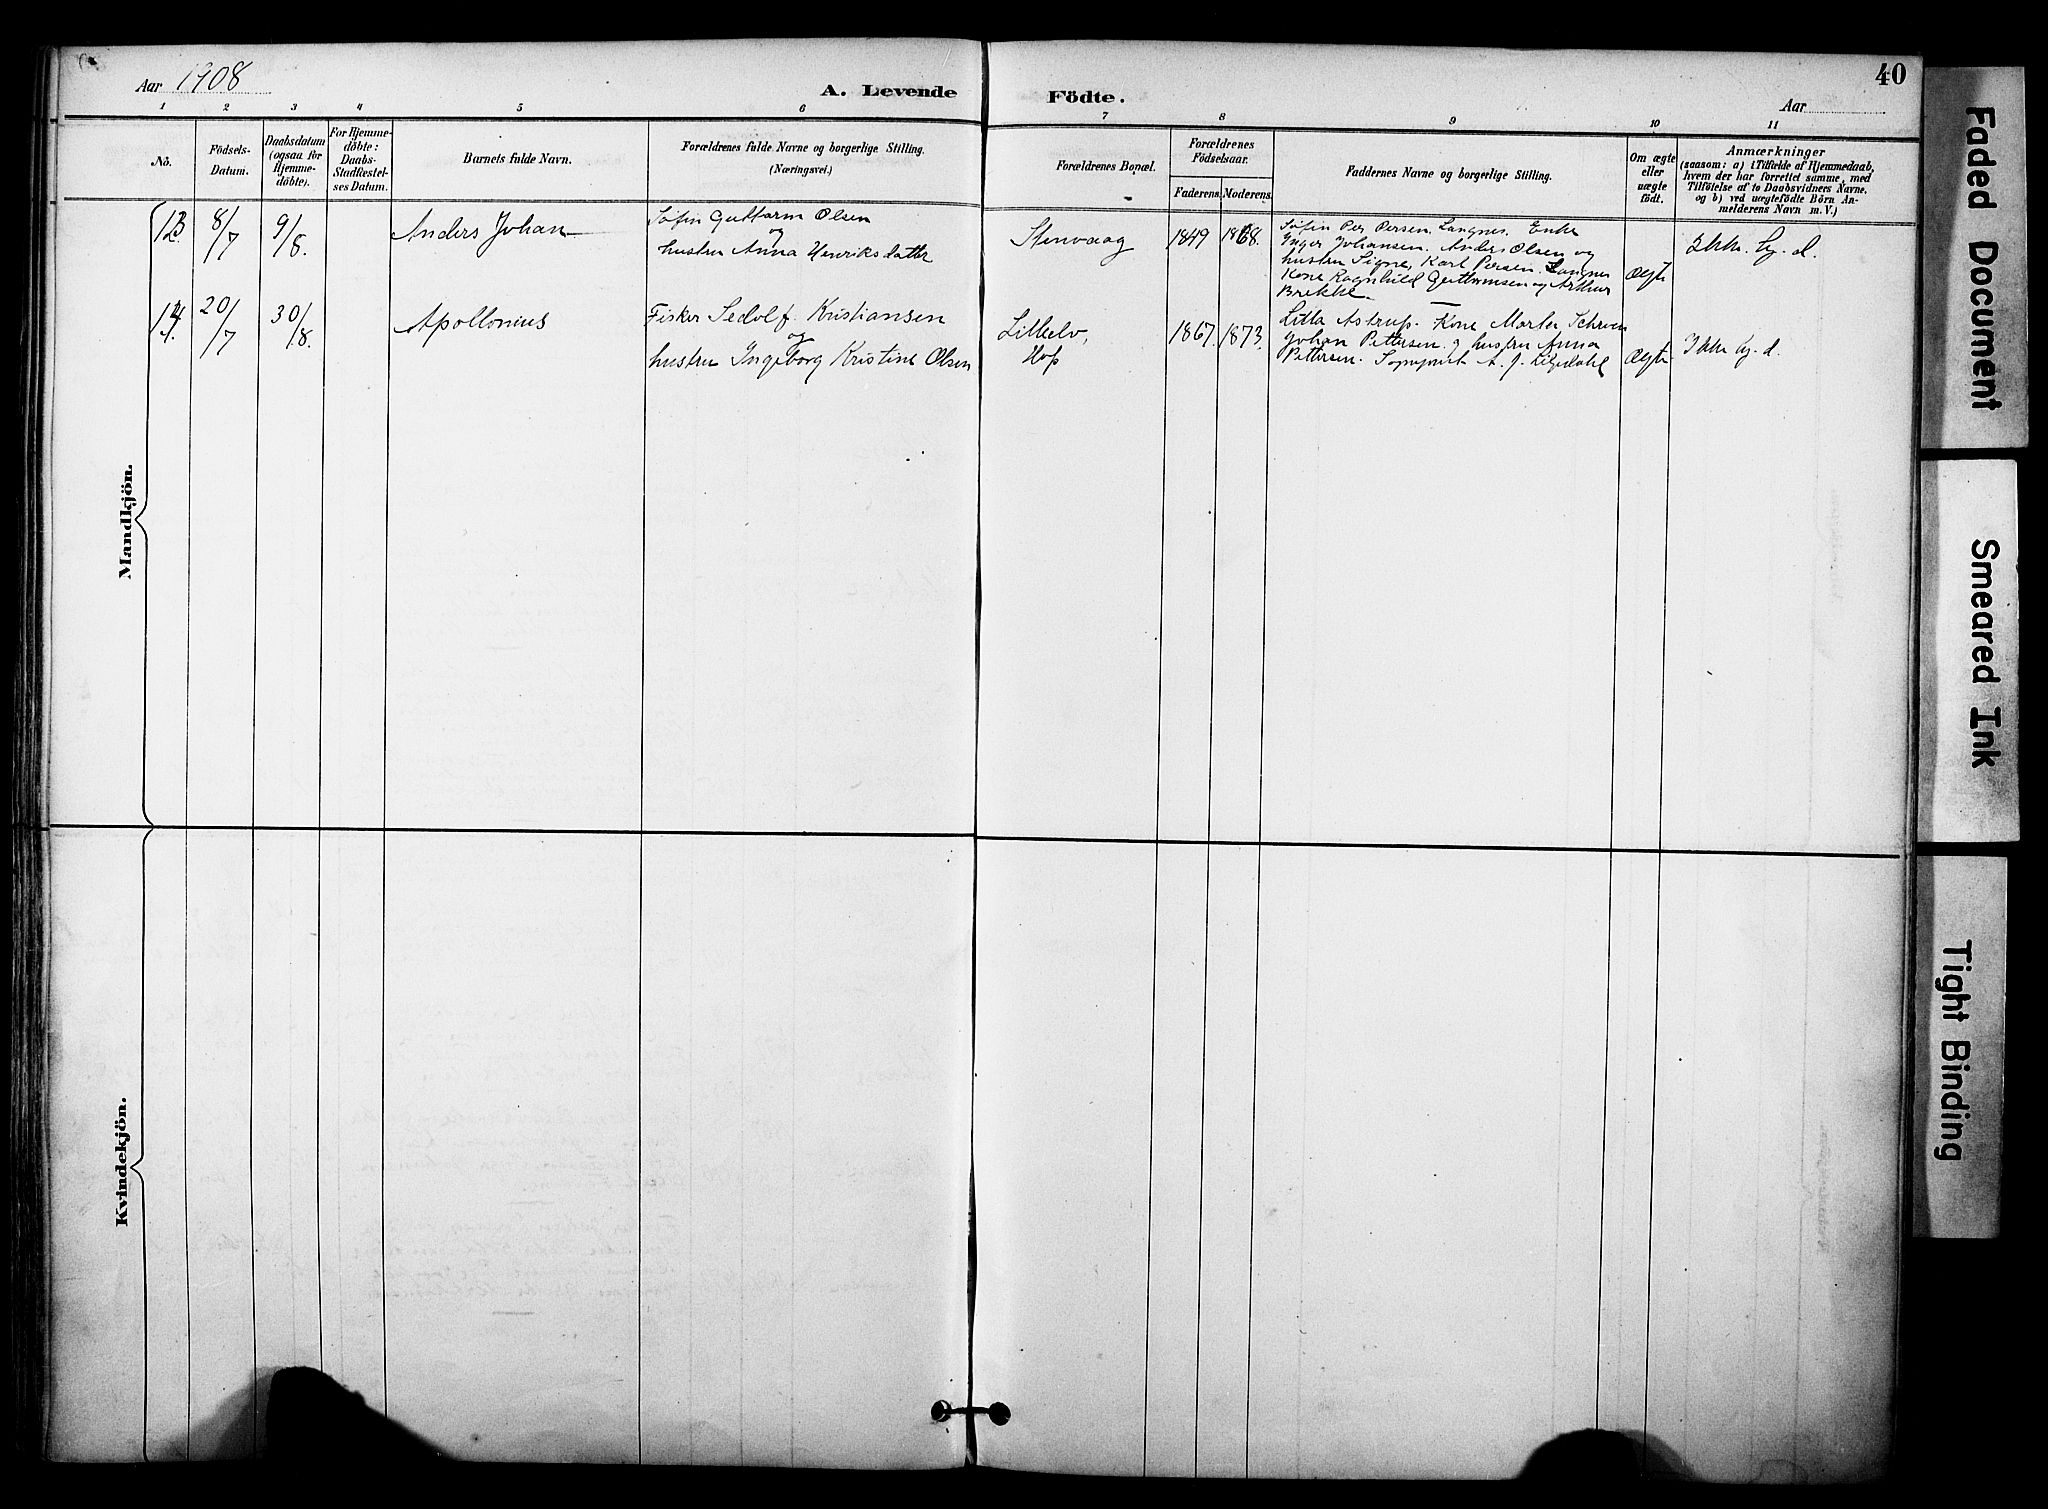 Aar 1908
A. Levende Födte.
Aar
40
1 2 3 4 5 6 7 8 9 10 11
No.
Födsels-
Datum.
Daabsdatum
(ogsaa for
Hjemme-
döbte).
For Hjemme-
döbte:
Daabs-
Stadfæstel-
ses Datum.
Barnets fulde Navn.
Forældrenes fulde Navne og borgerlige Stilling.
(Næringsvei.)
Forældrenes Bopæl.
Forældrenes
Födselsaar.
Faderens. Moderens.
Faddernes Navne og borgerlige Stilling.
Om ægte
eller
uægte
födt.
Anmærkninger
(saasom: a) i Tilfælde af Hjemmedaab,
hvem der har forrettet samme, med
Tilföielse af to Daabsvidners Navne.
og b) ved uægtefödte Börn An-
melderens Navn m. V.)
Mandkjön.
13
8/7
9/8
Anders Johan
Søfin Guttorm Olsen
og
hustru Anna Henriksdatter
Stenvaag
1849
1868.
Søfin Per Persen, Langnes. Enke
Inger Johansen. Anders Olsen og
hustru Signe, Karl Persen. Langnes
Kone Ragnhild Guttormsen og Arthur
Brekke.
Ægte
Ikke . d.
14
20/7
30/8.
Apollonius
Fisker Sedolf. Kristiansen
og
hustru Ingeborg Kristine Olsen
Lilleelv,
Hop
1867.
1873.
Astrup. Kone Marter
Johan Pettersen. og hustru Anna
Pettersen. A. J.
Ægte
Ikke . d.
Kvindekjön.
Faded Document
Smeared Ink
Tight Binding